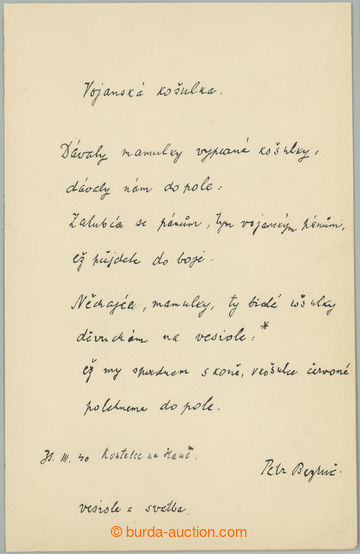 Vojanská košulka.
Dávaly mamulky vyprané košulky,
dávaly nám do pole:
Zalubíá se pánům, tym vojanským pánům,
až půjdete do boje.
Něchajéá, mamulky, ty bidé košulky
děvuchám na vesiole:*
až my spadnem s koně, v košulce červené
polehneme do pole.
III. 40 Kostelec na Hané.
Petr Bezruč.
vesiole = svatba.
© burda-auction.com